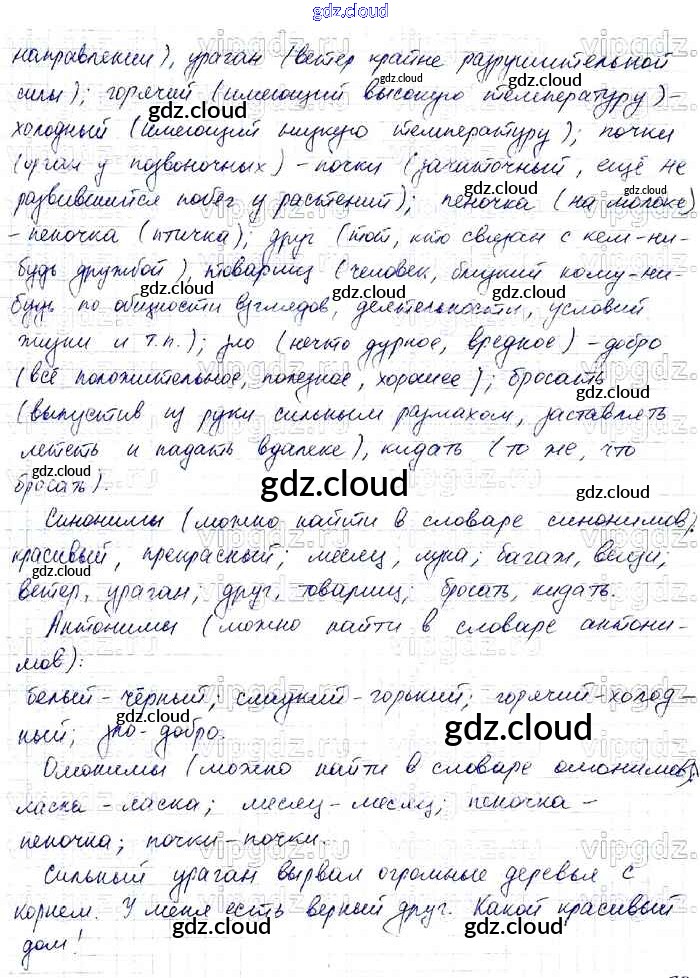 gdz.cloud
направлении), ураган (ветер крайне разрушительной
силы); горячий (имеющий высокую температуру) -
холодный (имеющий низкую температуру); почки
(орган у позвоночных) - почки (зачаточный, ещё не
развившийся побег у растений); пеночка (на молоке)
- пеночка (птичка); друг (тот, кто связан с кем-ни-
будь дружбой), товарищ (человек, близкий кому-ни-
будь по общности взглядов, деятельности, условий
жизни и т.п.); зло (нечто дурное, вредное) - добро
(всё положительное, полезное, хорошее); бросать
(выпустив из руки сильным размахом, заставлять
лететь и падать вдалеке), кидать (то же, что
бросать).
Синонимы (можно найти в словаре синонимов):
красивый, прекрасный; месяц, луна; багаж, вещи;
ветер, ураган; друг, товарищ; бросать, кидать.
Антонимы (можно найти в словаре антони-
мов):
белый - чёрный; сладкий - горький; горячий - холод-
ный; зло - добро.
Омонимы (можно найти в словаре омонимов):
ласка - ласка; месяц - месяц; пеночка -
пеночка; почки - почки.
Сильный ураган вырвал огромные деревья с
корнем. У меня есть верный друг. Какой красивый
дом!